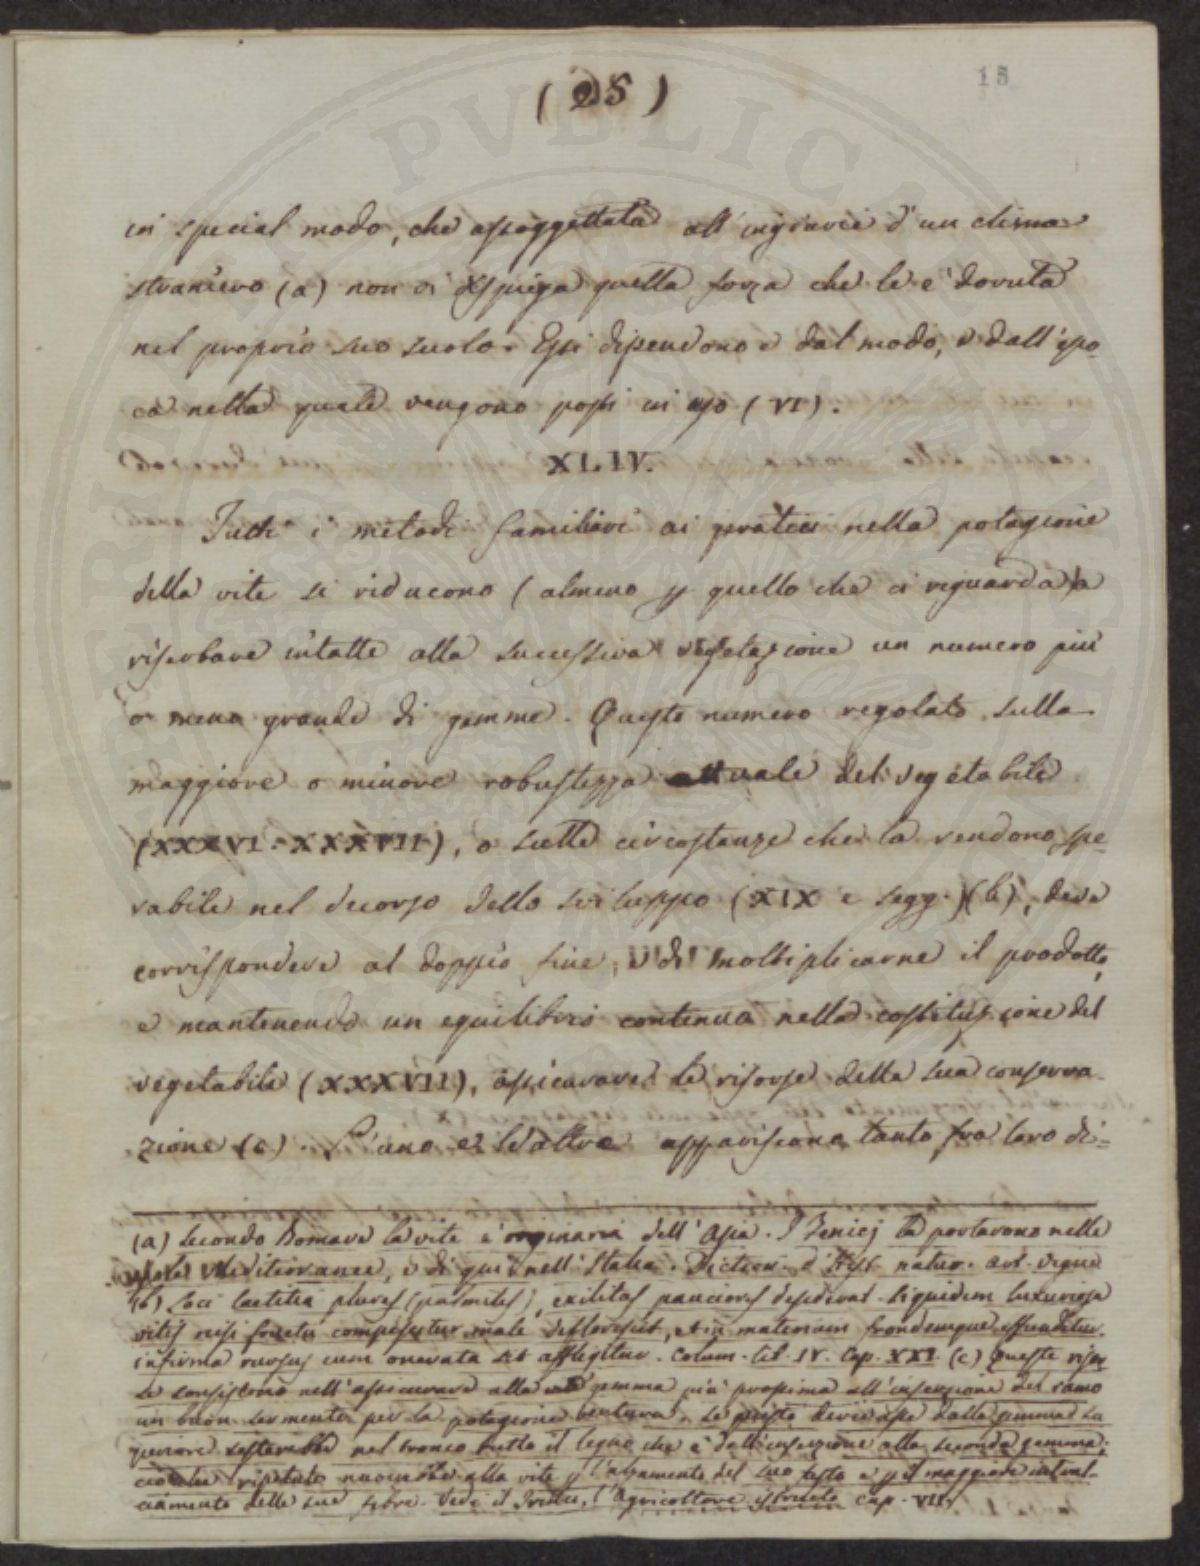 (25)
15
in special modo, che assoggettata all'ingiurie d'un clima
straniero (a) non vi dispiega quella forza che le è dovuta
nel proprio suo suolo. Essi dipendono e dal modo, e dall'epo-
ca nella quale vengono posti in uso (VI).
XLIV.
Tutti i metodi familiari ai pratici nella potagione
della vite si riducono (almeno p quello che ci riguarda) a
riserbare intatte alla successiva vegetazione un numero più
o meno grande di gemme. Questo numero regolato sulla
maggiore o minore robustezza attuale del vegetabile
(XXXVI-XXXVII), o sulle circostanze che la rendono spe-
rabile nel decorso dello sviluppo (XIX e segg.)(b), deve
corrispondere al doppio fine, e di moltiplicarne il prodotto,
e mantenendo un equilibrio continua nella costituzione del
vegetabile (XXXVII), assicurare le risorse della sua conserva-
zione (c). L'uno e l'altro appariscono tanto fra loro di-
(a) Secondo Bomare la vite è originaria dell'Asia. I Fenicj la portarono nelle
Mediterranee, e di qui nell'Italia. Diction. d'Hist. natur. art. vigne
(b) Loci laetitia plures (palmites), exilitas pauciores desiderat. Siquidem luxuriosa
vitis nisi fructu compescitur male deflorescit, et in materiam frondemque effunditur.
infirma rursus cum onerata sit affligitur. Colum. lib. IV. Cap. XXI (c) Queste risor-
se consistono nell'assicurare alla gemma più prossima all'inserzione del ramo
un buon sermento per la potagione ventura. Se questo derivasse dalla gemma su-
periore resterebbe nel tronco tutto il legno che è dall'inserzione alla seconda gemma.
ciocché ripetuto nuocerebbe alla vite p l'alzamento del suo fusto e p il maggiore intral-
ciamento delle sue fibre. Vedi il Trinci, l'Agricoltore istruito cap. VII.